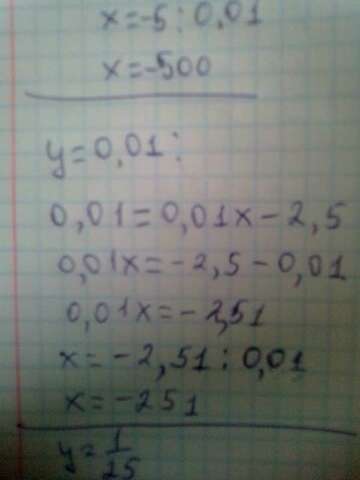 x=-5:0,01
x=-500
y=0,01:
0,01=0,01x-2,5
0,01x=-2,5-0,01
0,01x=-2,51
x=-2,51:0,01
x=-251
y=1/25